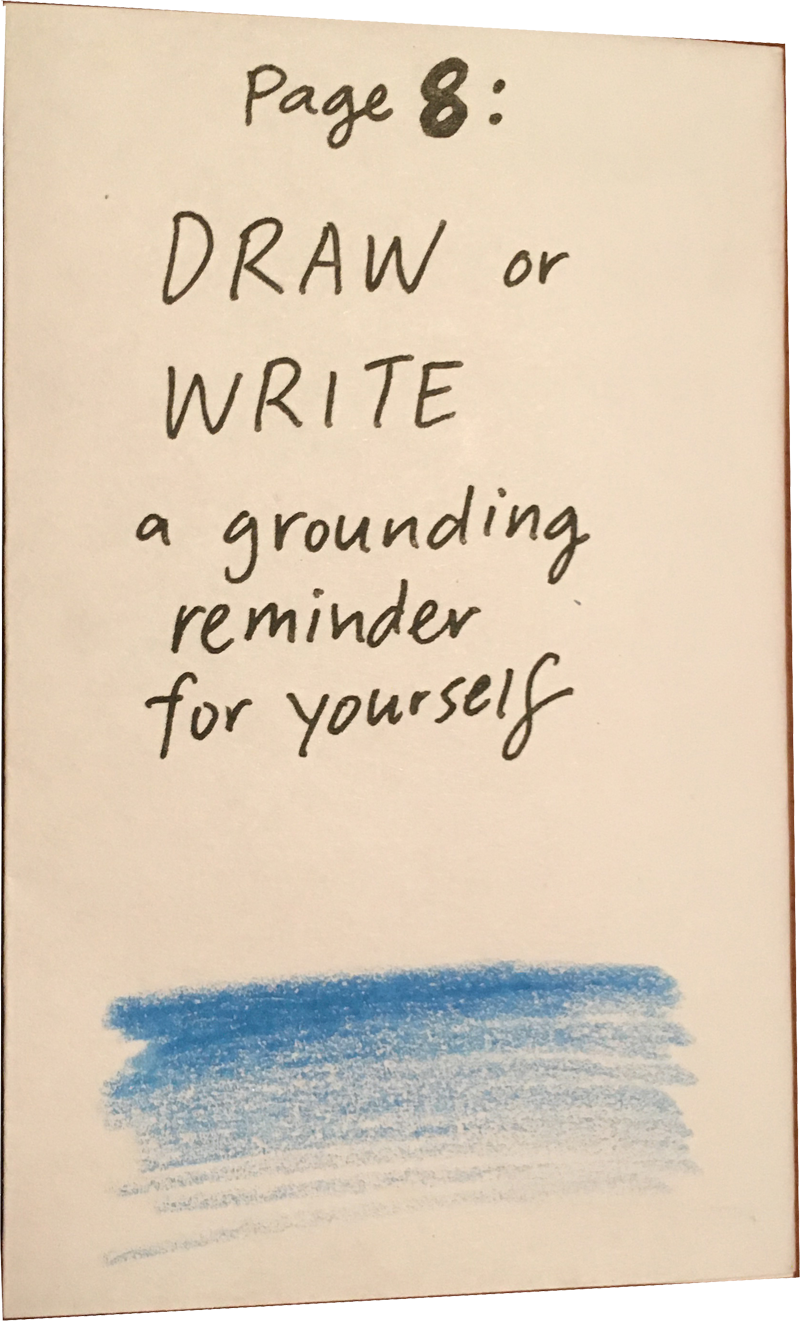 Page 8:
DRAW or
WRITE
a grounding
reminder
for yourself